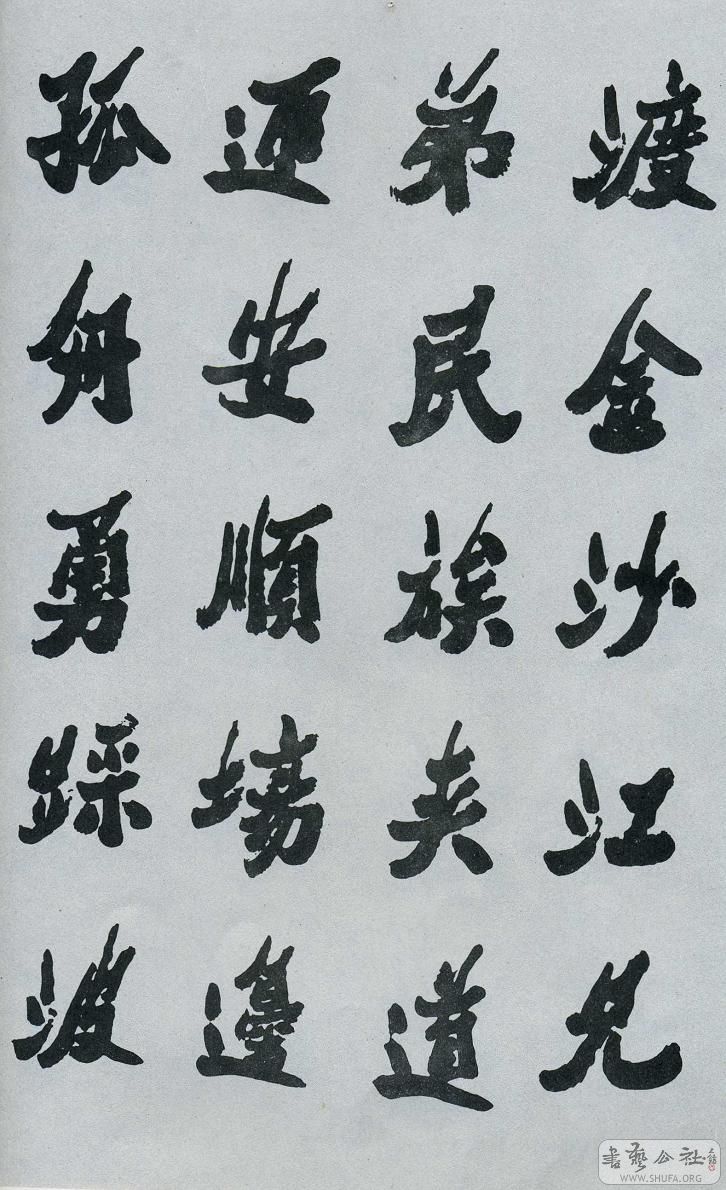 渡金沙江兄
弟民族夹道
迎安順場邊
孤舟勇踩波
書藝公社
WWW.SHUFA.ORG